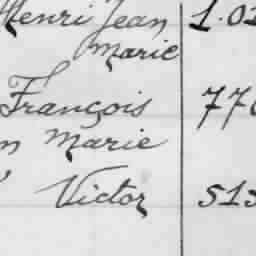 Henri Jean 1.02
Marie
François 770
n Marie
Victor 515